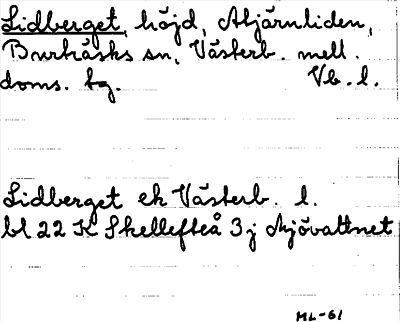 Lidberget, höjd, Åbjärnliden,
Burträsks sn, Västerb. mell.
doms. tg. Vb. l.
Lidberget ek Västerb. l.
bl 22 K Skellefteå 3 j Mjövattnet
ML-61